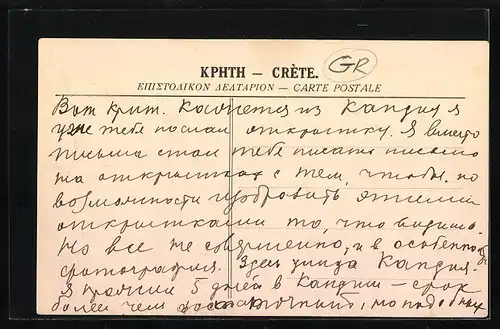 ΚΡΗΤΗ — CRÈTE.
GR
ΕΠΙΣΤΟΛΙΚΟΝ ΔΕΛΤΑΡΙΟΝ — CARTE POSTALE
Вот Крит. Кажется из Кандии я
уже тебе послал открытку. Я вместо
письма стал тебе писать письмо
на открытках с тем, чтобы по
возможности изобразить этими
открытками то, что видишь.
Но все не совершенно, и в особенно
фотография. Здесь улица Кандии.
Я прожил 5 дней в Кандии — срок
более чем достаточный, но подобных